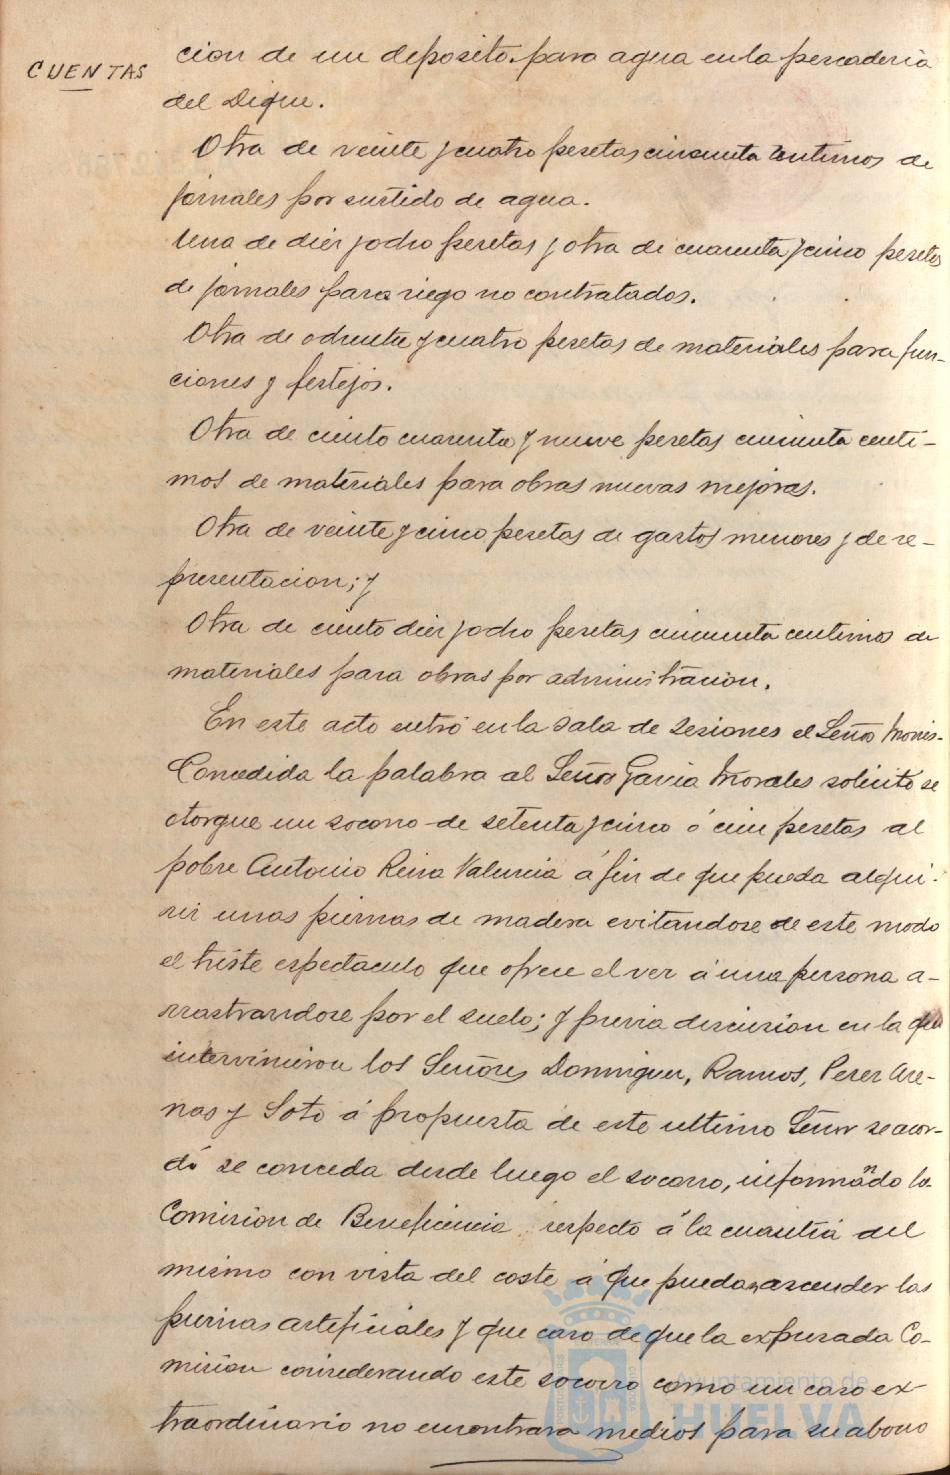 CUENTAS
cion de un deposito para agua en la pescaderia
del Dique.
Otra de veinte y cuatro pesetas cincuenta centimos de
jornales por surtido de agua.
Una de diez y ocho pesetas y otra de cuarenta y cinco pesetas
de jornales para riego no contratados.
Otra de ochenta y cuatro pesetas de materiales para fun-
ciones y festejos.
Otra de ciento cuarenta y nueve pesetas cincuenta centi-
mos de materiales para obras nuevas mejoras.
Otra de veinte y cinco pesetas de gastos menores y de re-
presentacion; y
Otra de ciento diez y ocho pesetas cincuenta centimos de
materiales para obras por administracion.
En este acto entró en la Sala de Sesiones el Señor Monis.
Concedida la palabra al Señor Garcia Morales solicitó se
otorgue un socorro de setenta y cinco ó cien pesetas al
pobre Antonio Reina Valencia á fin de que pueda alqui-
rir unas piernas de madera evitandose de este modo
el triste espectaculo que ofrece el ver á una persona a-
rrastrandose por el suelo; y previa discusion en la que
intervinieron los Señores Dominguez, Ramos, Perez Are-
nas y Soto á propuesta de este ultimo Señor se acor-
dó se conceda desde luego el socorro, informando la
Comision de Beneficencia respecto á la cuantia del
mismo con vista del coste á que puedan ascender las
piernas artificiales y que caso de que la expresada Co-
mision considerando este socorro como un caso ex-
traordinario no encontrara medios para su abono
Ayuntamiento de
HUELVA